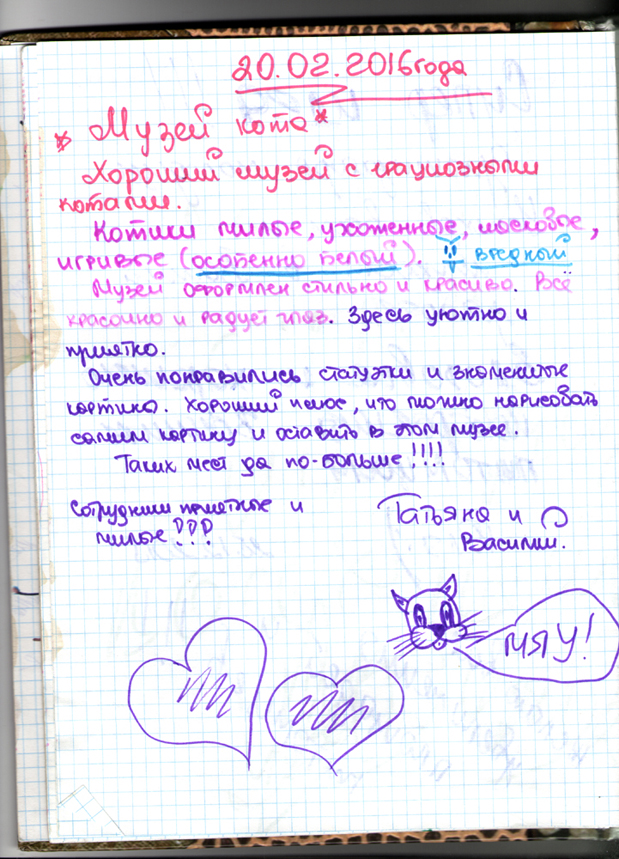 20.02.2016 года
* Музей кота *
Хороший музей с грациозными
котами.
Котики милые, ухоженные, шёлковые,
игривые (особенно белый). вредный
Музей оформлен стильно и красиво. Всё
красочно и радует глаз. Здесь уютно и
приятно.
Очень понравились статуэтки и знаменитые
картины. Хороший плюс, что можно нарисовать
самим картину и оставить в этом музее.
Таких мест да по-больше!!!!
Сотрудники приятные и
милые!!!
Татьяна и
Василий.
МЯУ!